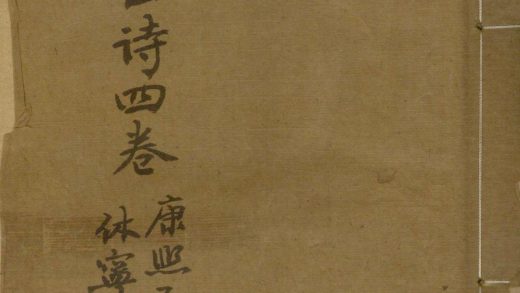 诗四卷
康熙
休寧